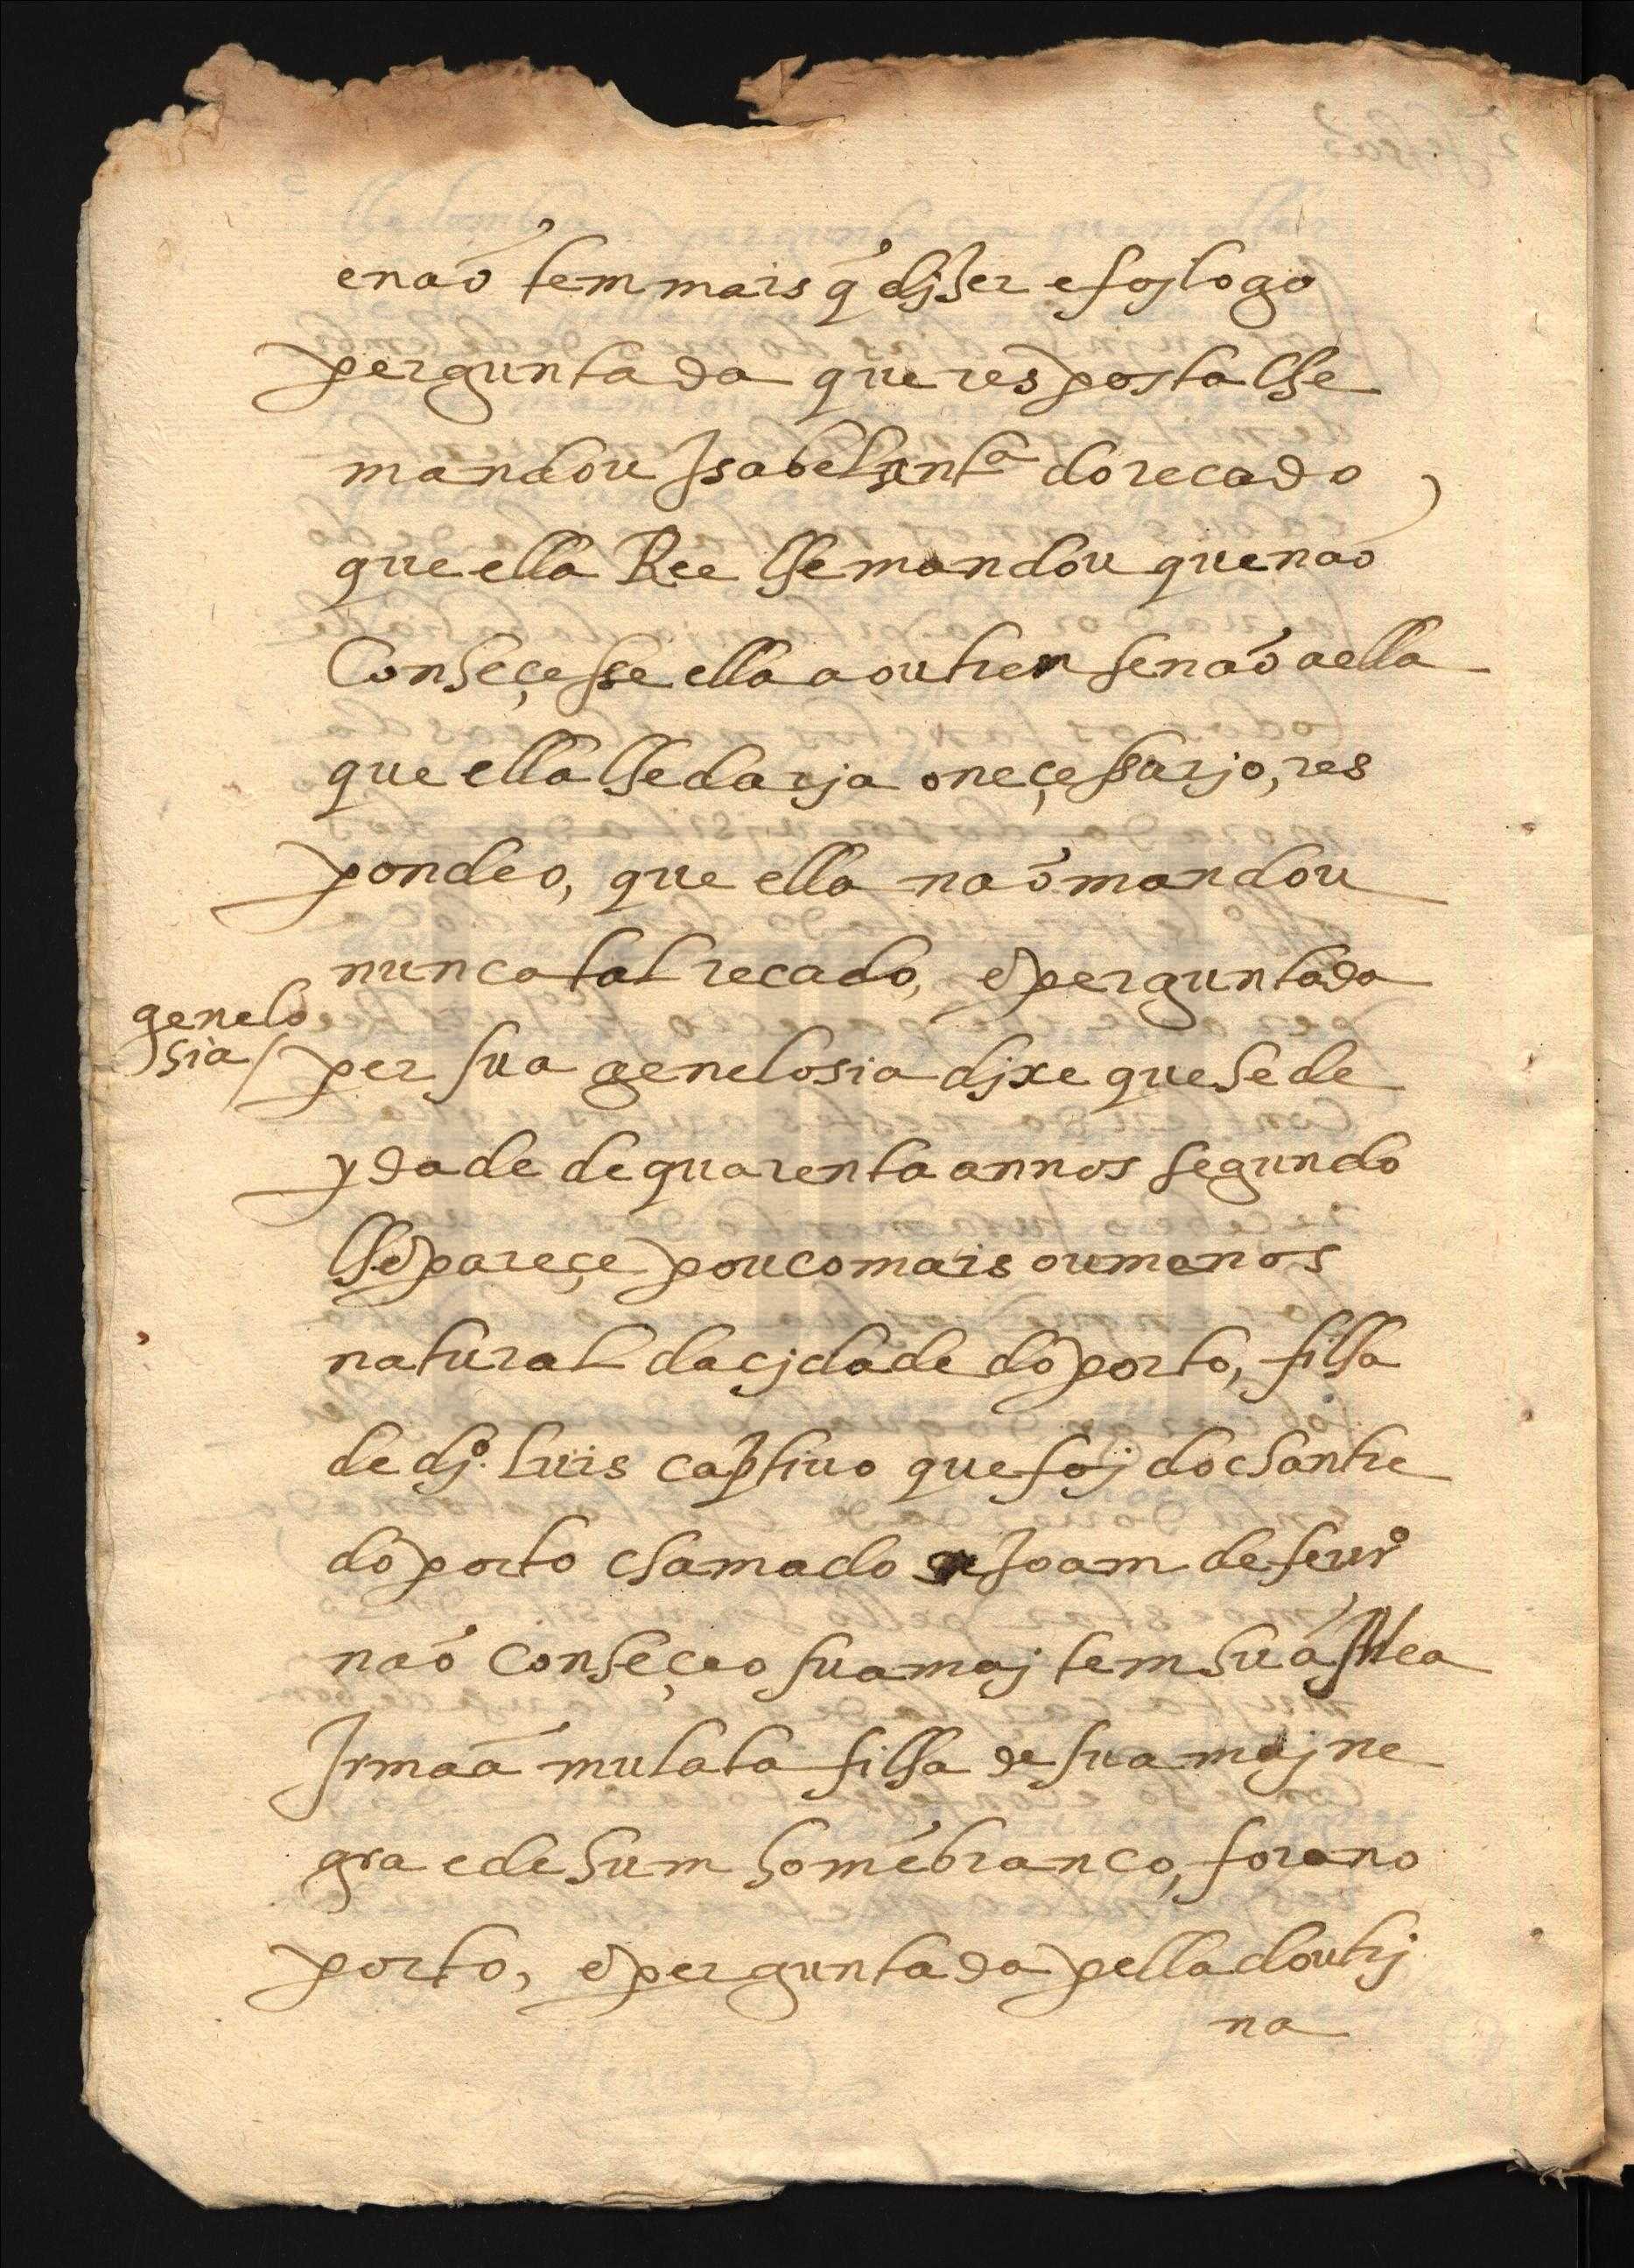 e não tem mais q̃ djzer e foj logo
perguntada que resposta lhe
mandou Isabel Ant.ª do recado
que ella Ree lhe mandou que não
Conheçesse ella a outrem senão a ella
que ella lhe darja o neçessarjo, res
pondeo, que ella não mandou
nunca tal recado, e perguntada
genelo
sia
per sua genelosia djxe que he de
ydade de quarenta annos segundo
lhe pareçe pouco mais ou menos
natural da çjdade do porto, filha
de dj.º luis captiuo que foj do chantre
do porto chamado Joam de
não Conheçeo sua maj tem huã
Irmaã mulata filha de sua maj ne
gra e de hum homẽ branco, fora no
porto, e perguntada pella doutrj
na